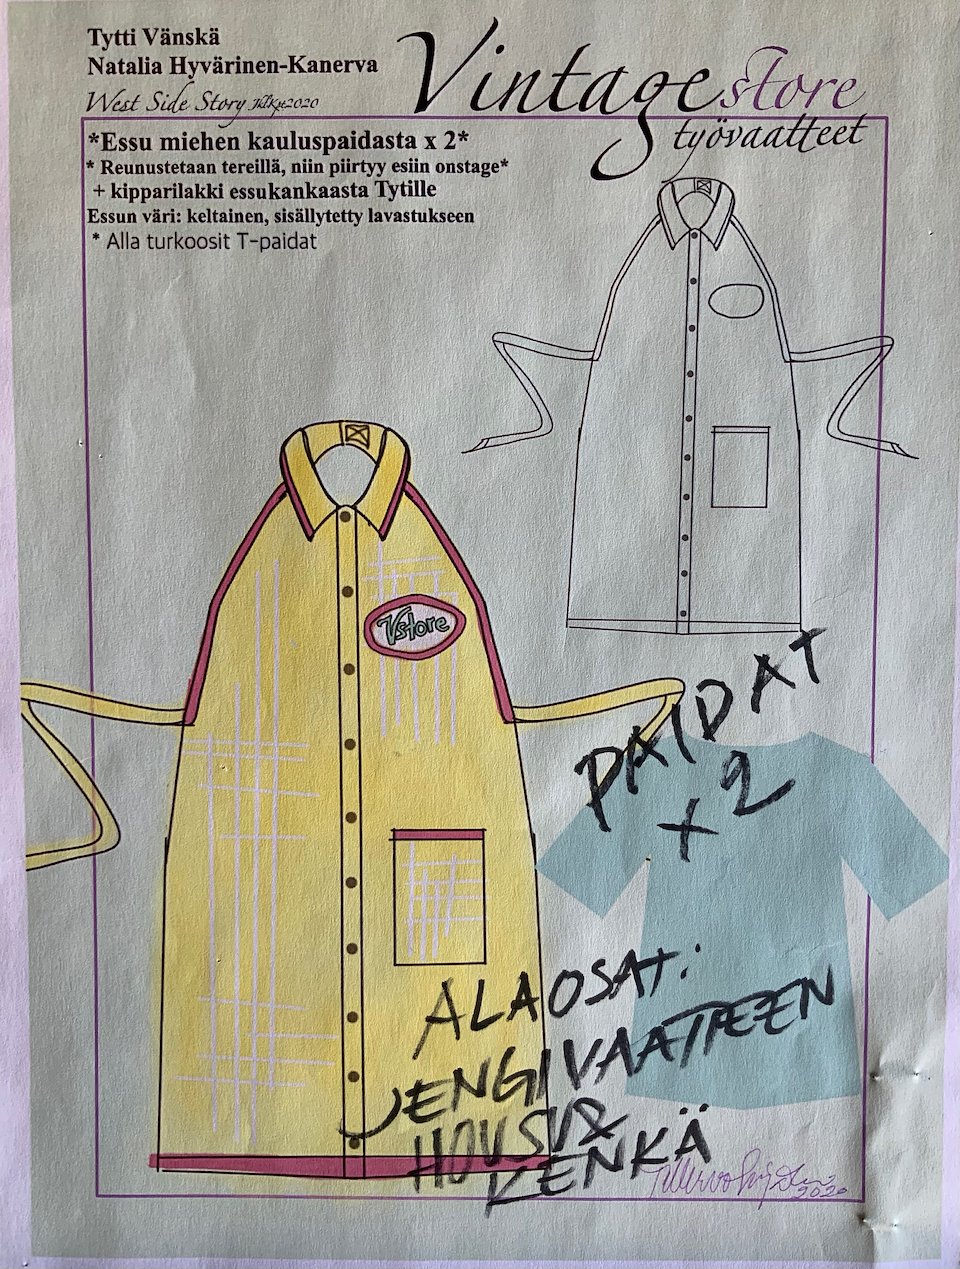 Tytti Vänskä
Natalia Hyvärinen-Kanerva
West Side Story Jklkpt2020
Vintage store
työvaatteet
*Essu miehen kauluspaidasta x 2*
* Reunustetaan tereillä, niin piirtyy esiin onstage*
+ kipparilakki essukankaasta Tytille
Essun väri: keltainen, sisällytetty lavastukseen
* Alla turkoosit T-paidat
Vstore
PAIDAT
x 2
ALAOSAT:
JENGIVAATTEEN
HOUSU &
KENKÄ
2020